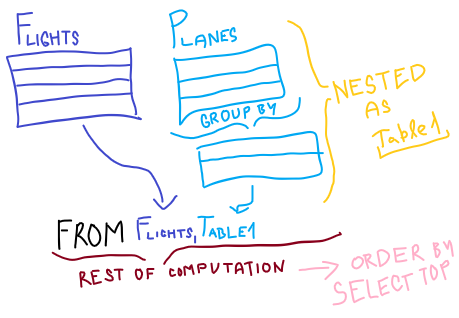 FLIGHTS
PLANES
GROUP BY
NESTED
AS
Table1
FROM FLIGHTS, TABLE1
REST OF COMPUTATION
ORDER BY
SELECT TOP